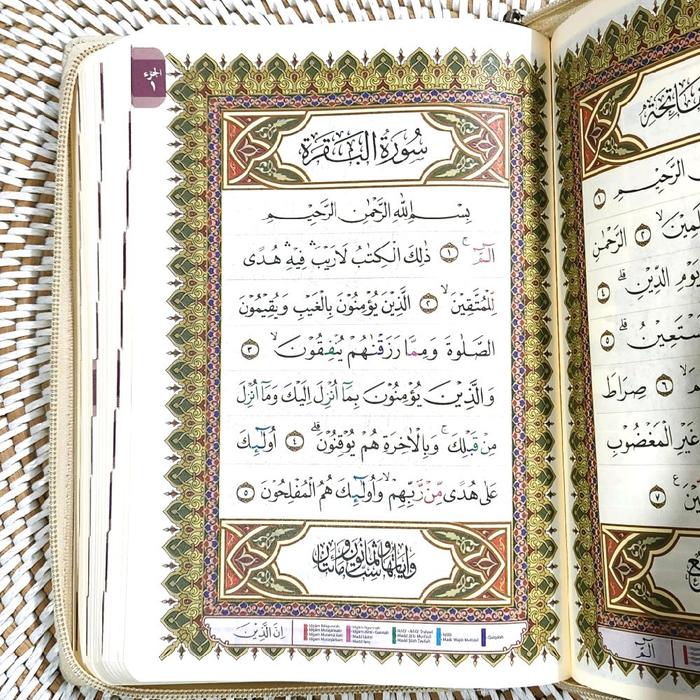 الجزء ١
سُورَةُ الْبَقَرَةِ
بِسْمِ اللّٰهِ الرَّحْمٰنِ الرَّحِيْمِ
الۤمّۤ ۚ ١ ذٰلِكَ الْكِتٰبُ لَا رَيْبَ ۛ فِيْهِ ۛ هُدًى
لِّلْمُتَّقِيْنَ ۙ ٢ الَّذِيْنَ يُؤْمِنُوْنَ بِالْغَيْبِ وَيُقِيْمُوْنَ
الصَّلٰوةَ وَمِمَّا رَزَقْنٰهُمْ يُنْفِقُوْنَ ۙ ٣
وَالَّذِيْنَ يُؤْمِنُوْنَ بِمَآ اُنْزِلَ اِلَيْكَ وَمَآ اُنْزِلَ
مِنْ قَبْلِكَ ۚ وَبِالْاٰخِرَةِ هُمْ يُوْقِنُوْنَ ۗ ٤ اُولٰۤىِٕكَ
عَلٰى هُدًى مِّنْ رَّبِّهِمْ ۙ وَاُولٰۤىِٕكَ هُمُ الْمُفْلِحُوْنَ ٥
وآياتها ست وثمانون ومائتان
اِنَّ الَّذِيْنَ
الرَّحِيْمِ ١
٢ الرَّحْمٰنِ
يَوْمِ الدِّيْنِ ۗ ٤
٥
٦ صِرَاطَ
غَيْرِ الْمَغْضُوْبِ
٧
الۤمّۤ